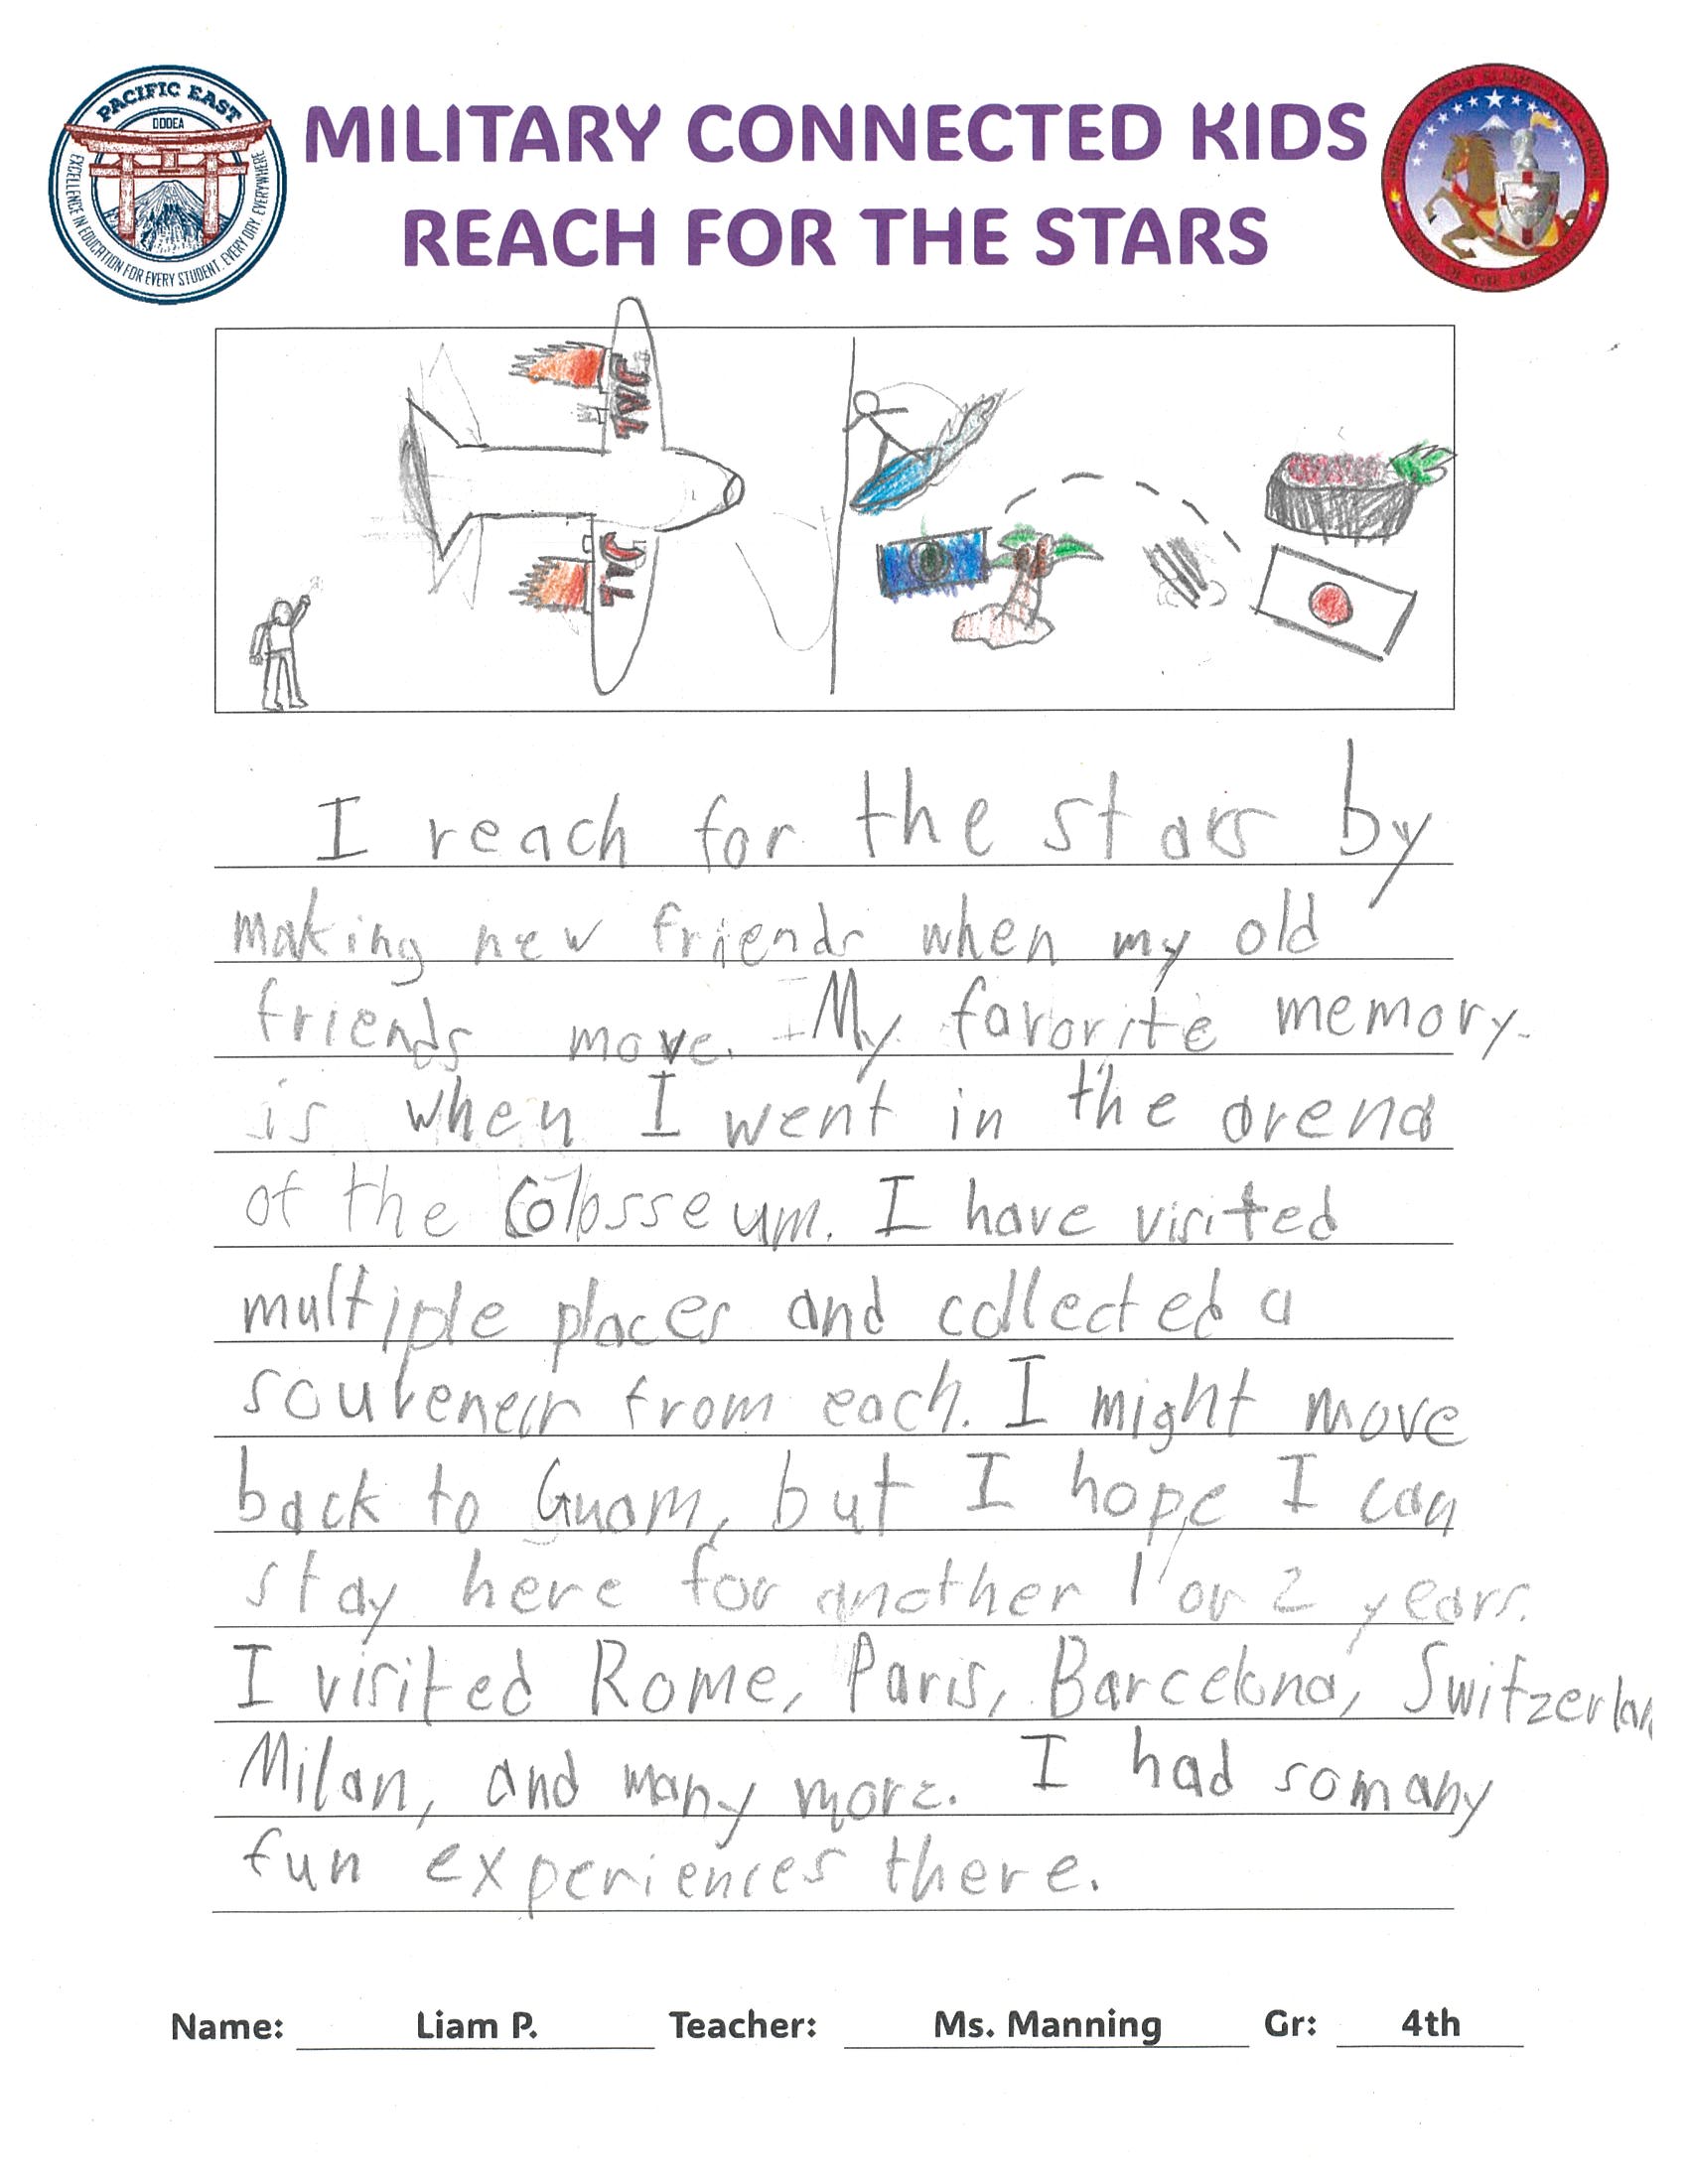 PACIFIC EAST
DODEA
EXCELLENCE IN EDUCATION FOR EVERY STUDENT, EVERY DAY, EVERYWHERE
MILITARY CONNECTED KIDS
REACH FOR THE STARS
JAL
JAL
I reach for the stars by
making new friends when my old
friends move. My favorite memory
is when I went in the arena
of the Colosseum. I have visited
multiple places and collected a
souveneir from each. I might move
back to Guam, but I hope I can
stay here for another 1 or 2 years.
I visited Rome, Paris, Barcelona, Switzerlan
Milan, and many more. I had somany
fun experiences there.
Name: Liam P. Teacher: Ms. Manning Gr: 4th